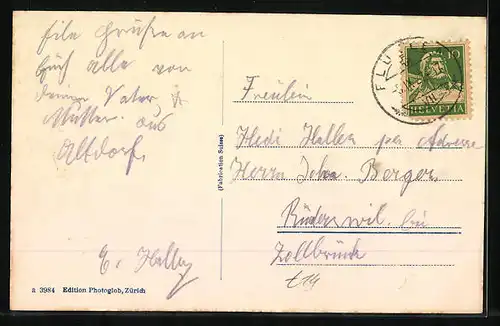 file Grüße an
Euch alle von
deinem Vater, &
Mutter. aus
Altdorf.
E. Haller
a 3984 Edition Photoglob, Zürich
(Fabrication Suisse)
FLÜ
10
HELVETIA
Fräulein
Hedi Haller per Adresse
Herrn Joha. Berger,
Rüderswil. bei
Zollbrück